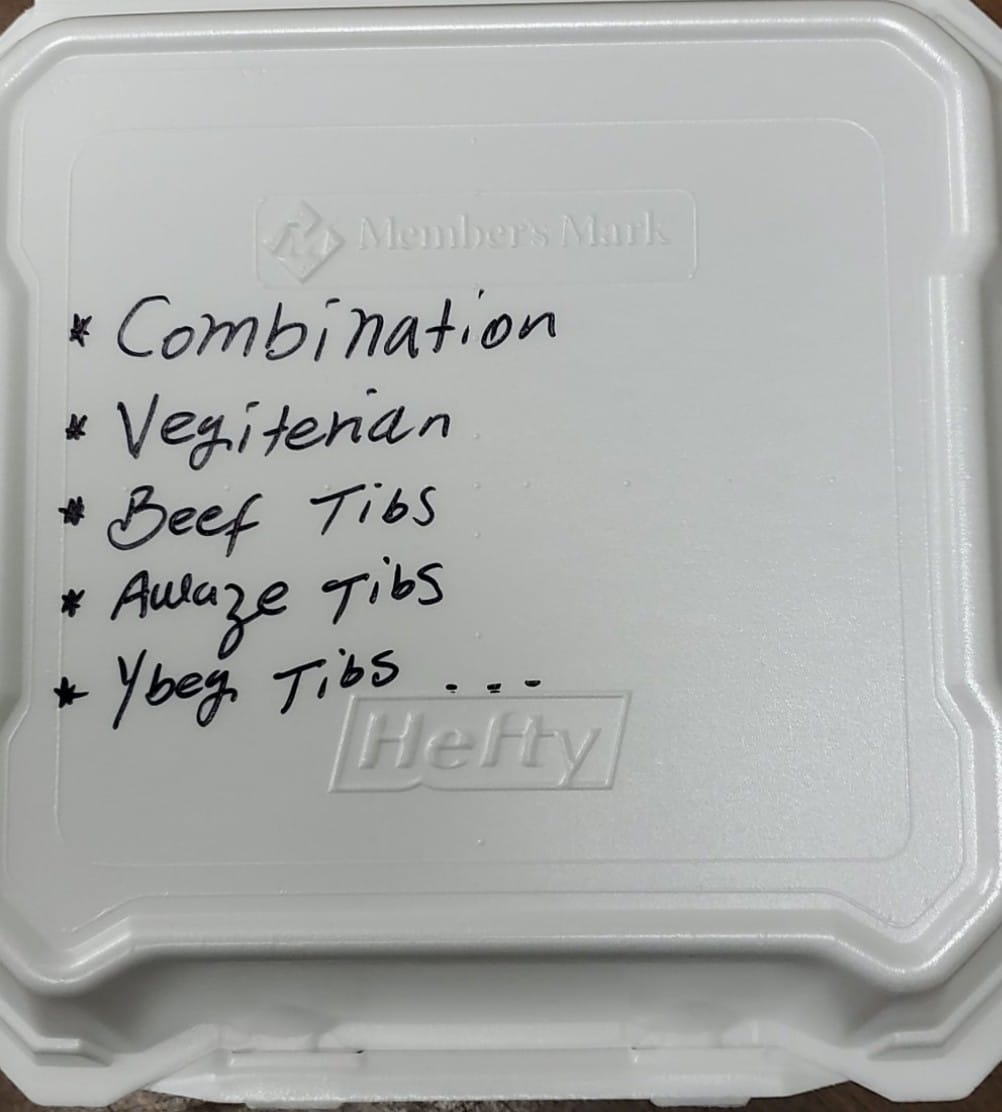 Member's Mark
* Combination
* Vegiterian
* Beef Tibs
* Awaze Tibs
* Ybeg Tibs ...
Hefty